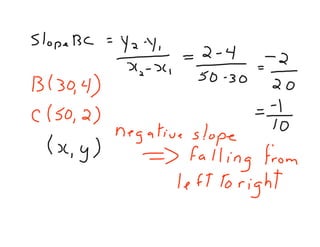 Slope BC = y₂-y₁ / x₂-x₁ = 2-4 / 50-30 = -2 / 20
= -1 / 10
B(30,4)
C(50,2)
(x,y)
negative slope
=> falling from
left to right